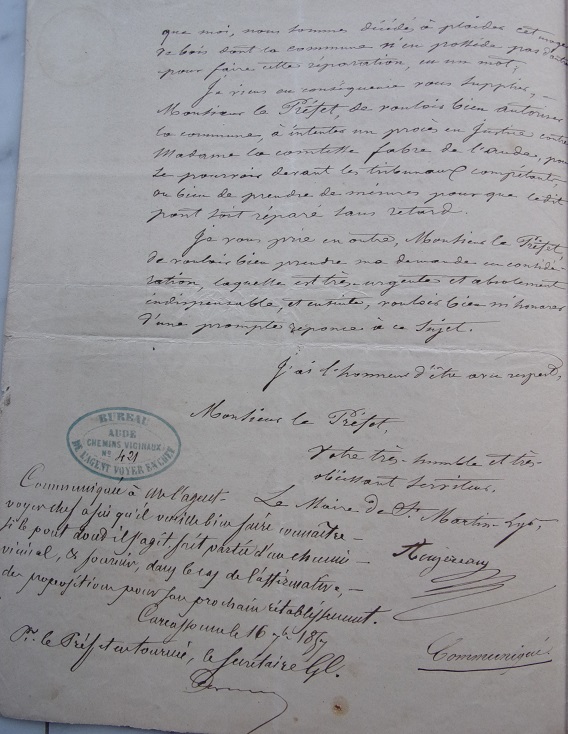 que moi, nous sommes décidés à plaider cet
de bois dont la commune n'en possède pas
pour faire cette réparation, en un mot;
Je viens en conséquence vous supplier,
Monsieur le Préfet, de vouloir bien autoriser
la commune, à intenter un procès en Justice contre
Madame la comtesse fabre de l'aude, pour
se pourvoir devant les tribunaux compétents,
ou bien de prendre de mésures pour que ledit
pont soit réparé sans retard.
Je vous prie en outre, Monsieur le Préfet,
de vouloir bien prendre ma demande en considé-
ration, laquelle est très-urgente et absolument
indispensable, et ensuite, vouloir bien m'honorer
d'une prompte réponce à ce sujet.
J'ai l'honneur d'être avec respect,
Monsieur le Préfet,
Votre très-humble et très-
obéissant serviteur,
Le Maire de St. Martin-Lys,
BUREAU
AUDE
CHEMINS VICINAUX
N° 421
DE L'AGENT VOYER EN CHEF
Communiqué à M. l'agent
voyer chef afin qu'il veuille bien faire connaître
si le pont dont il s'agit fait partie d'un chemin
vicinal, & fournir, dans le cas de l'affirmative,
des propositions pour son prochain rétablissement.
Carcassonne le 16
Pr. le Préfet en tournée, le Secrétaire Gl.
Communiqué